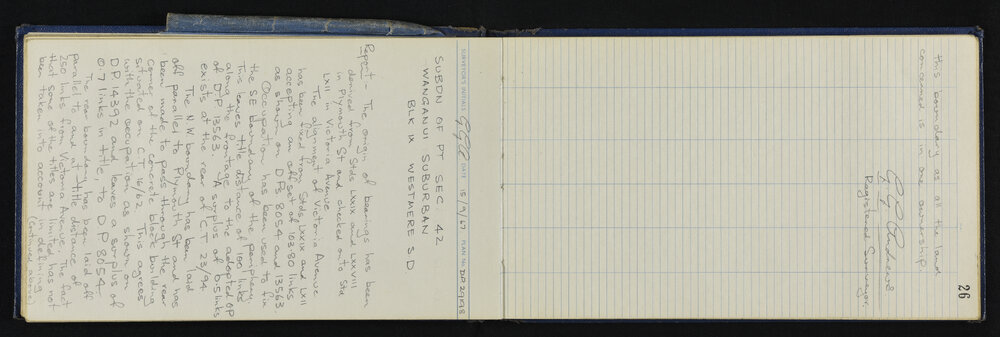 26
SURVEYOR'S INITIALS DATE 15/9/67 PLAN No. DP29178
SUBDN OF PT SEC 42
WANGANUI SUBURBAN
BLK IX WESTMERE S D
Report - The origin of bearings has been
derived from Stds LXXIX and LXXVIII
in Plymouth St and checked onto Std
LXII in Victoria Avenue.
The alignment of Victoria Avenue
has been fixed from Stds LXXIX and LXII
accepting an offset of 103.80 links
as shown on DPs 8054 and 13563.
Occupation has been used to fix
the SE boundary of the periphery.
This leaves title distance of 100 links
along the frontage to the adopted OP
of DP 13563. A surplus of 0.5 links
exists at the rear of CT 23/94
The NW boundary has been laid
off parallel to Plymouth St and has
been made to pass through the rear
corner of the concrete block building
situated on CT 16/62. This agrees
with the occupation as shown on
DP 14392 and leaves a surplus of
0.7 links in title, to DP 8054.
The rear boundary has been laid off
parallel to and at title distance of
250 links from Victoria Avenue. The fact
that some of the titles are limited has not
been taken into account in defining
(continued above)
this boundary as all the land
concerned is in one ownership.
Registered Surveyor.